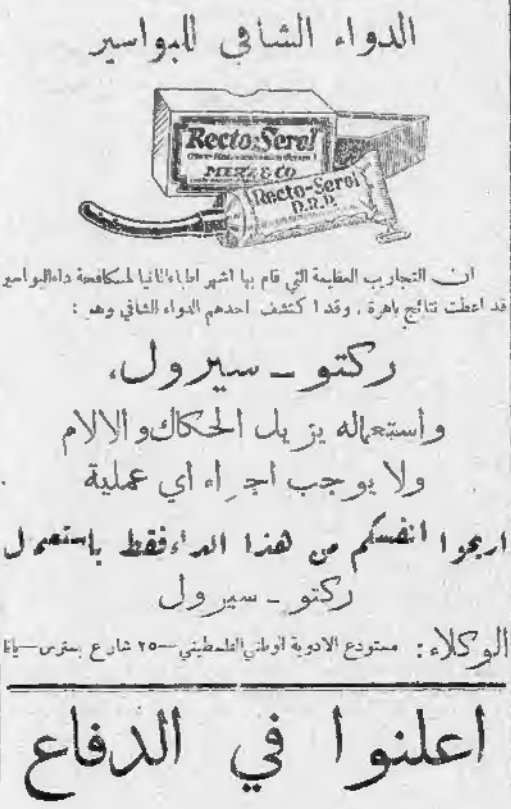 الدواء الشافي للبواسير
Recto-Serol
MERZ & CO
Recto-Serol
D.R.P.
ان التجاريب العظيمة التي قام بها اشهر اطباء المانيا لمكافحة داء البواسير
قد اعطت نتائج باهرة . وقد ا كتشف احدهم الدواء الشافي وهو :
ركتو ـ سيرول
واستعماله يزيل الحكاك والالام
ولا يوجب اجراء اي عملية
اريحوا انفسكم من هذا الداء فقط باستعمال
ركتو ـ سيرول
الوكلاء : مستودع الادوية الوطني الفلسطيني — ٢٥ شارع بسترس — يافا
اعلنوا في الدفاع